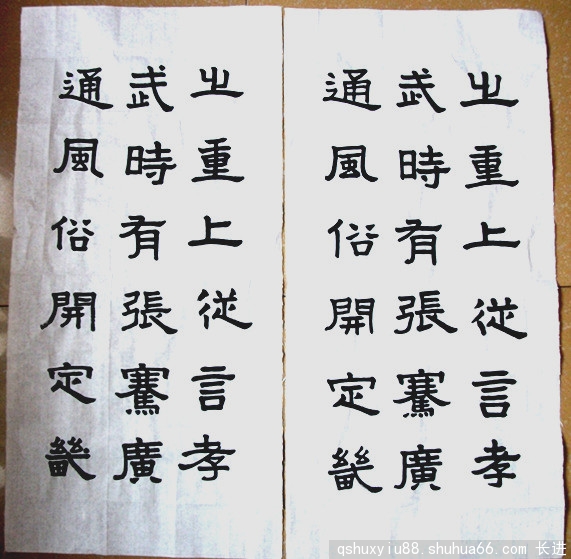 之重上從言孝
武時有張騫廣
通風俗開定畿
之重上從言孝
武時有張騫廣
通風俗開定畿
qshuxyiu88.shuhua66.com 长进